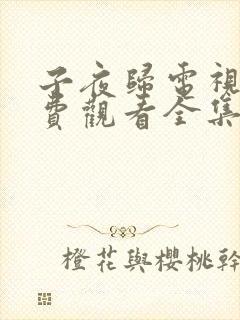 子夜歸電視
費觀看全集
橙花與櫻桃幹